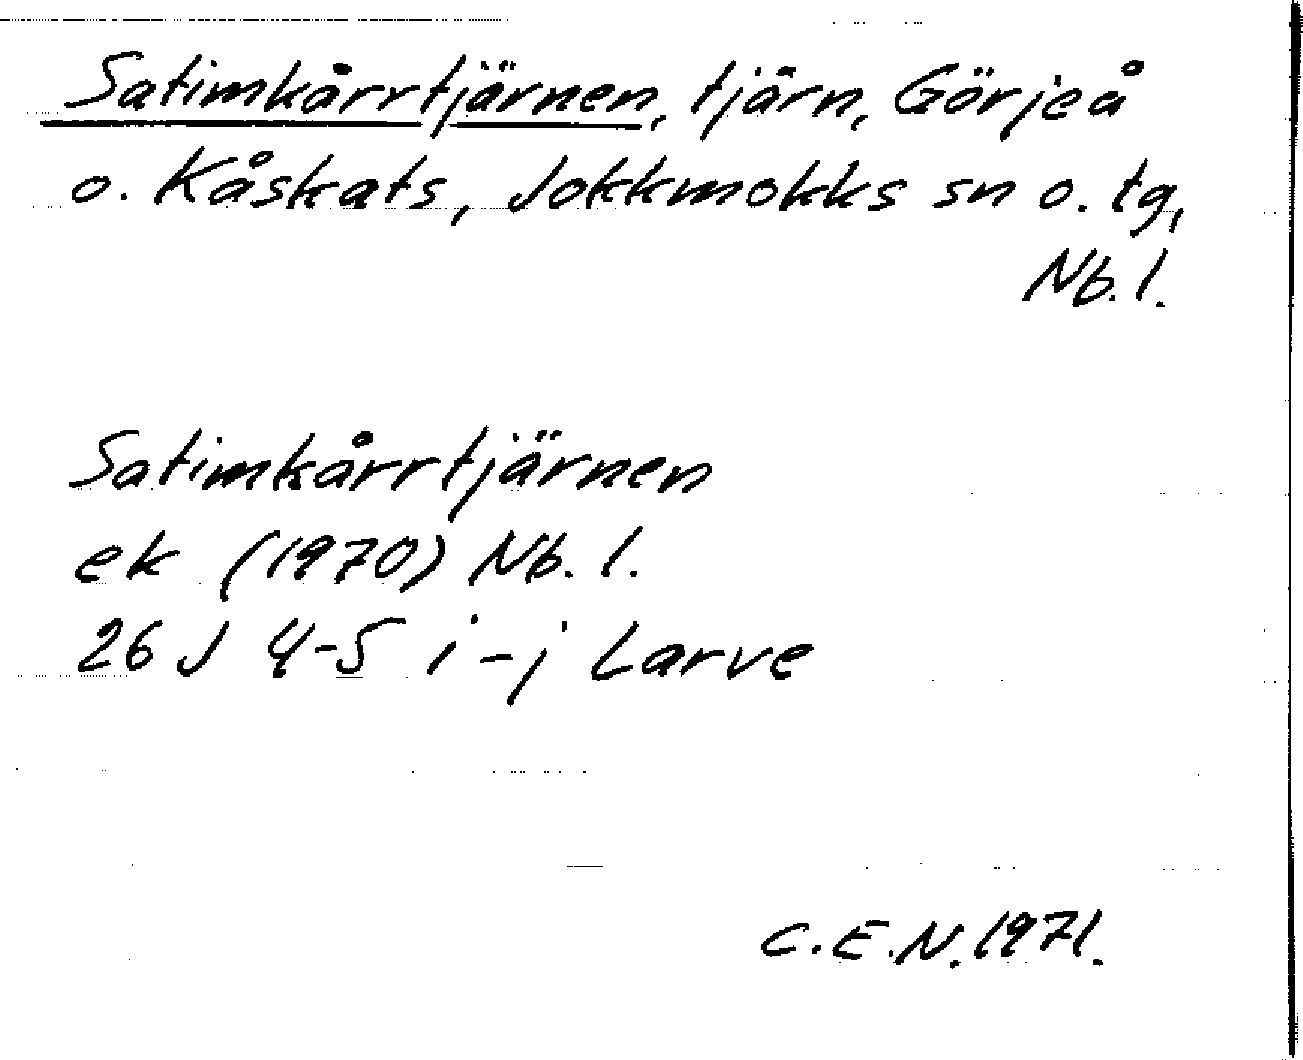 Satimkårrtjärnen, tjärn, Görjeå
o. Kåskats, Jokkmokks sn o. tg,
Nb. l.
Satimkårrtjärnen
ek (1970) Nb. l.
26 J 4-5 i-j Larve
C.E.N. 1971.